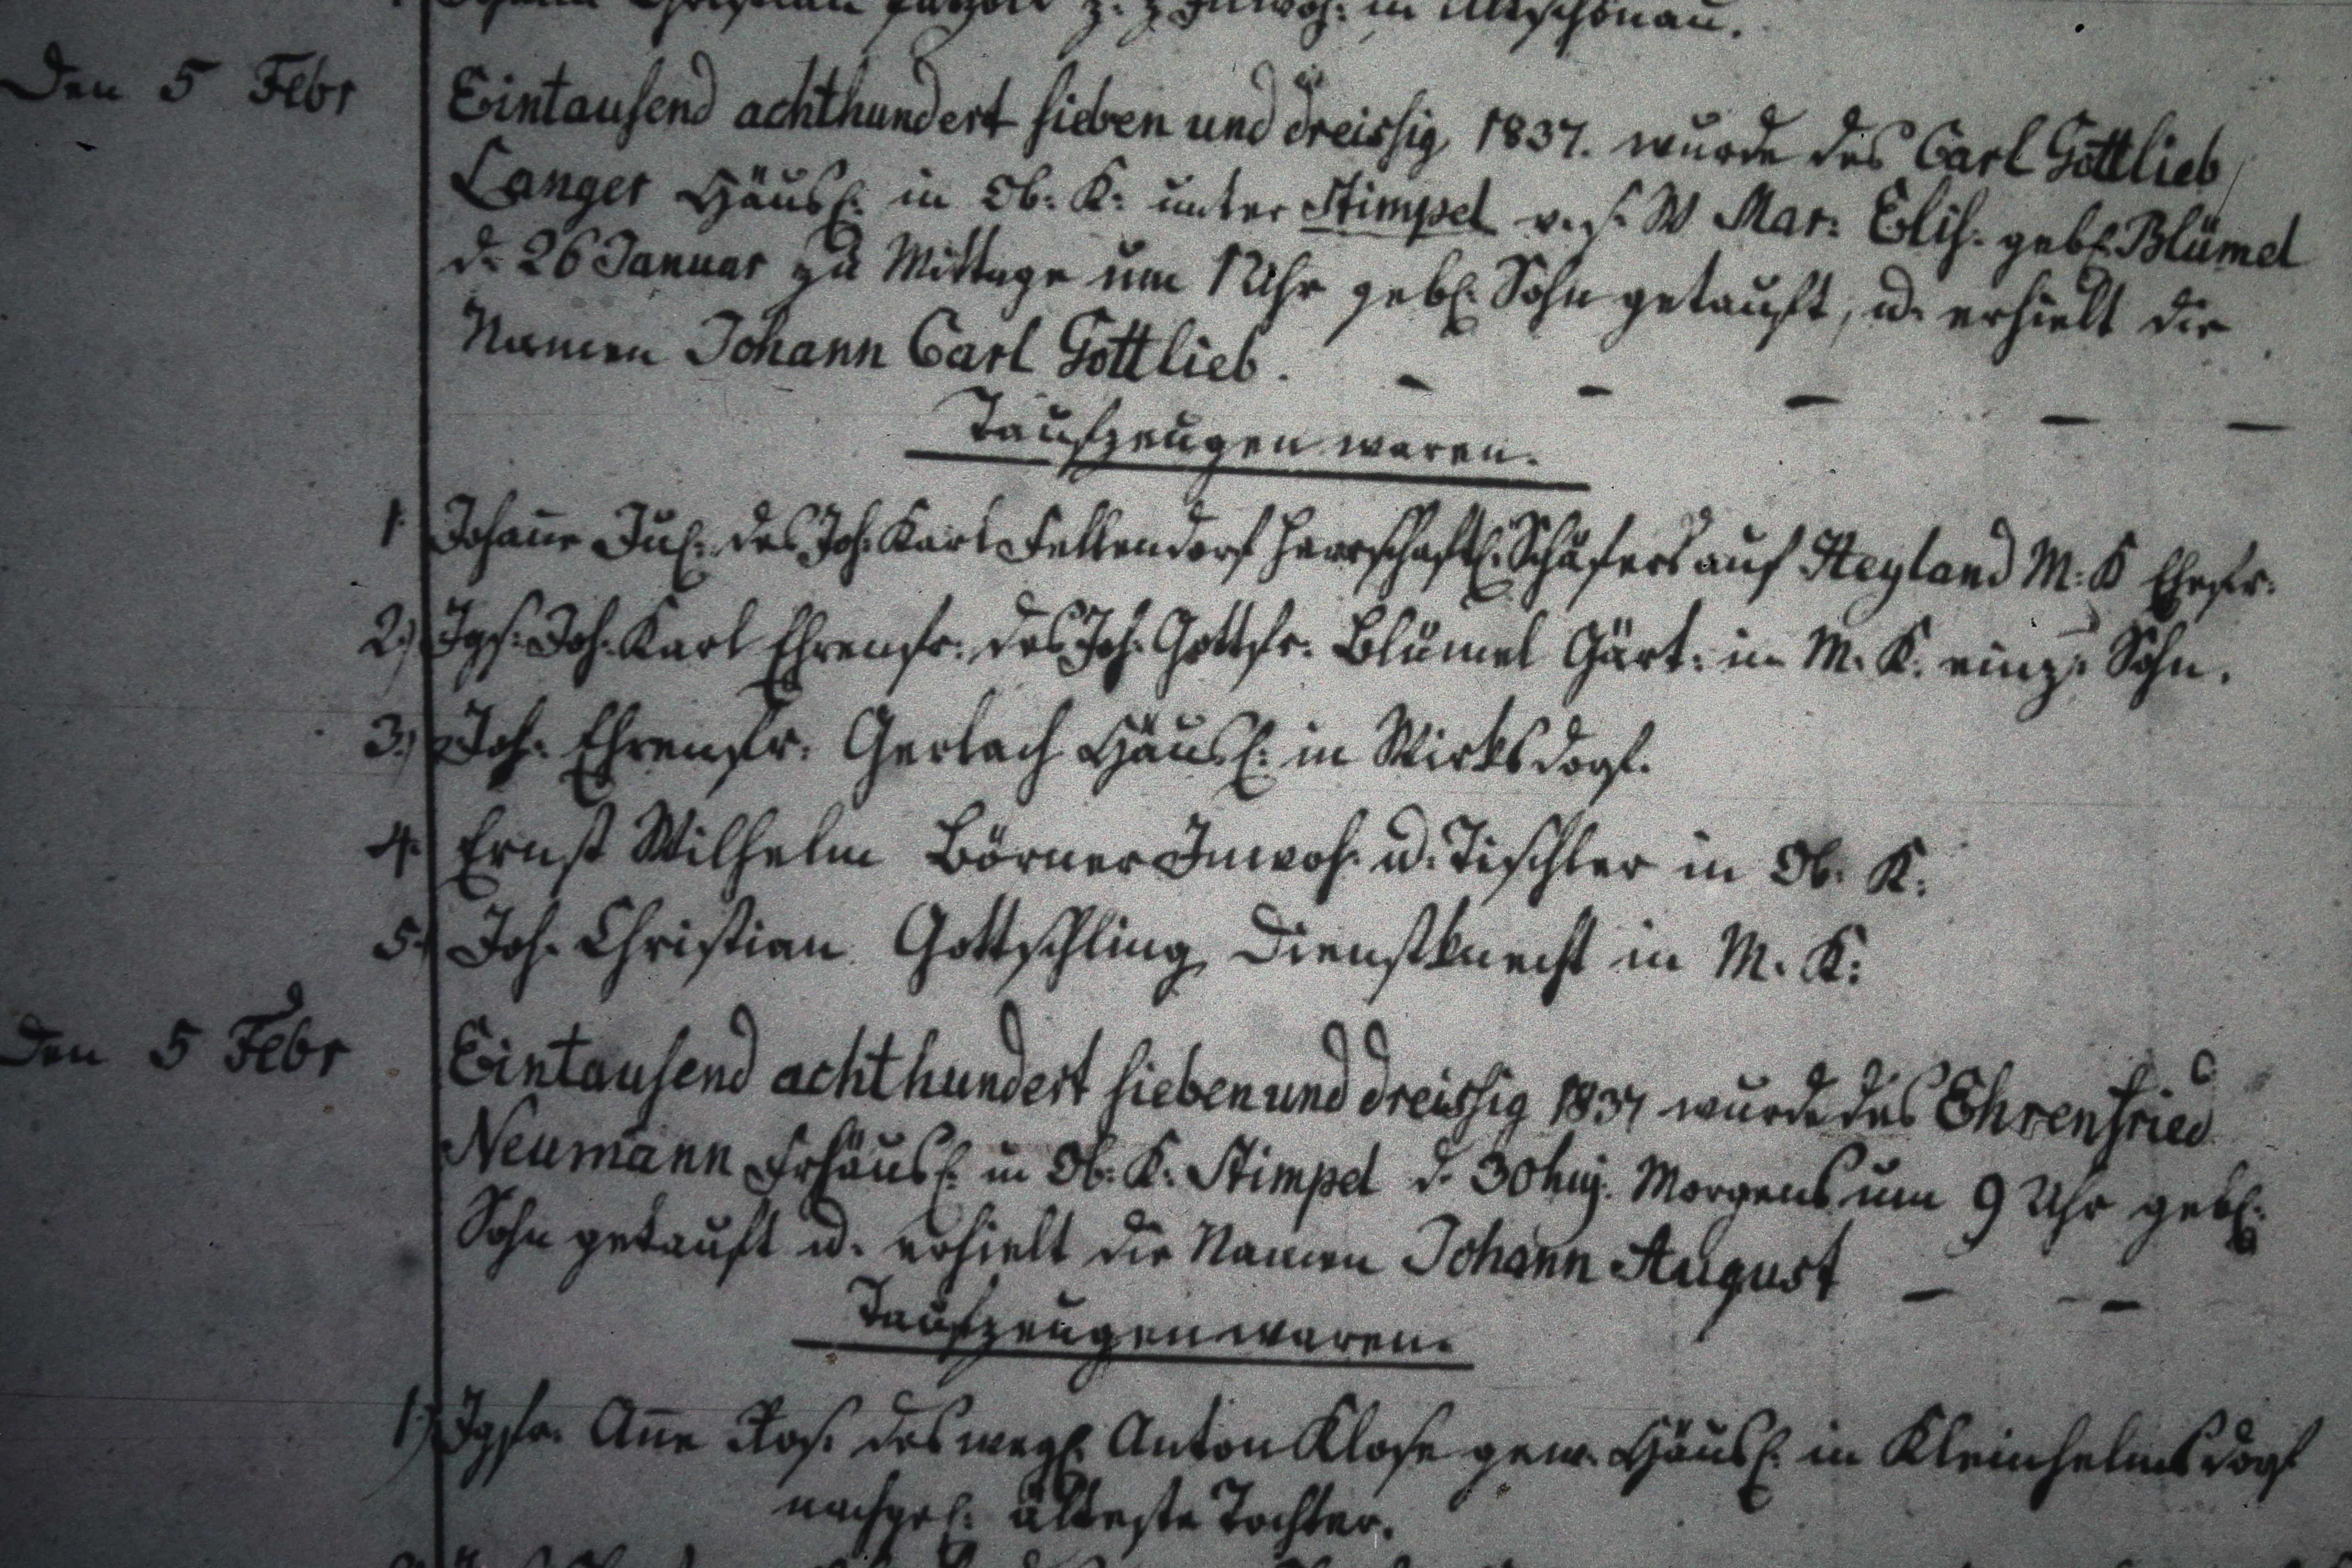 Christian z. Z. Inwoh: in Altschönau.
Den 5 Febr
Eintausend achthundert sieben und dreissig 1837. wurde des Carl Gottlieb
Langer Häusl: in Ob: K: unter Stimpel v. s. W Mar: Elis: gebl. Blümel
d. 26 Januar zu Mittage um 12 Uhr gebl: Sohn getauft, u. erhielt die
Namen Johann Carl Gottlieb. - - - - -
Taufzeugen waren.
1 Johanne Jul: des Joh: Karl Fellendorf herrschaftl: Schäfers auf Heyland M: K Ehefr:
2.) Jgs: Joh: Karl Ehrenfr: des Joh: Gottfr: Blümel Gärt: in M: K: einz: Sohn.
3.) Joh: Ehrenfr: Gerlach Häusl: in Wirksdorf.
4. Ernst Wilhelm Börner Inwoh: u. Tischler in Ob: K:
5. Joh: Christian Gottschling Dienstknecht in M. K:
Den 5 Febr
Eintausend achthundert sieben und dreissig 1837 wurde des Ehrenfried
Neumann Frhäusl: in Ob: K: Stimpel d. 30 huj. Morgens um 9 Uhr gebl:
Sohn getauft u. erhielt die Namen Johann August - -
Taufzeugen waren.
1.) Jgfr. Anne Ros: des weyl: Anton Klose gew: Häusl: in Kleinhelmsdorf
nachgel: älteste Tochter.